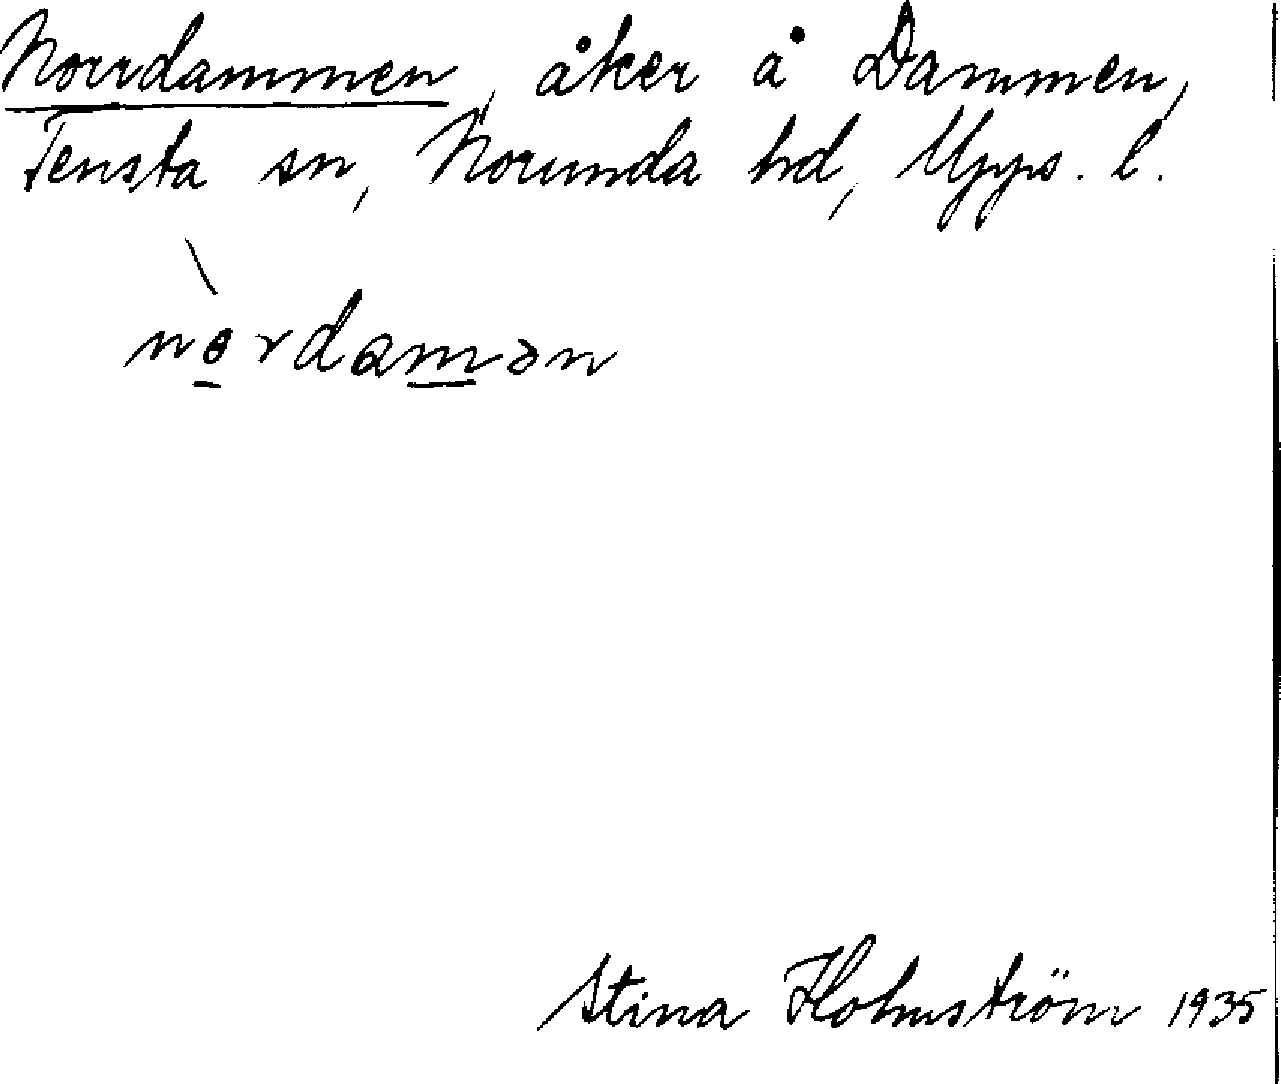 Norrdammen, åker å Dammen,
Tensta sn, Norunda hd, Upps. l.
nɵ̀rdamən
Stina Holmström 1935